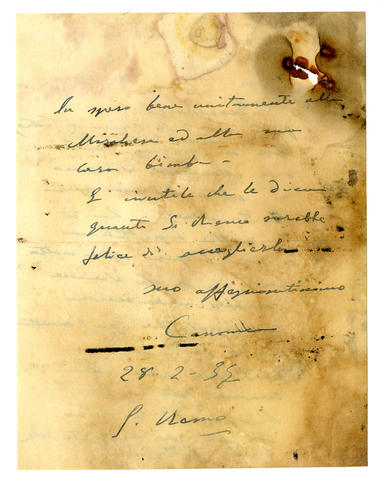 La spero bene unitamente alla
ed alla sua
cara bimba -
È inutile che le dica
quanto S. Remo sarebbe
felice di accoglierla
suo affezionatissimo
28-2-35
S. Remo